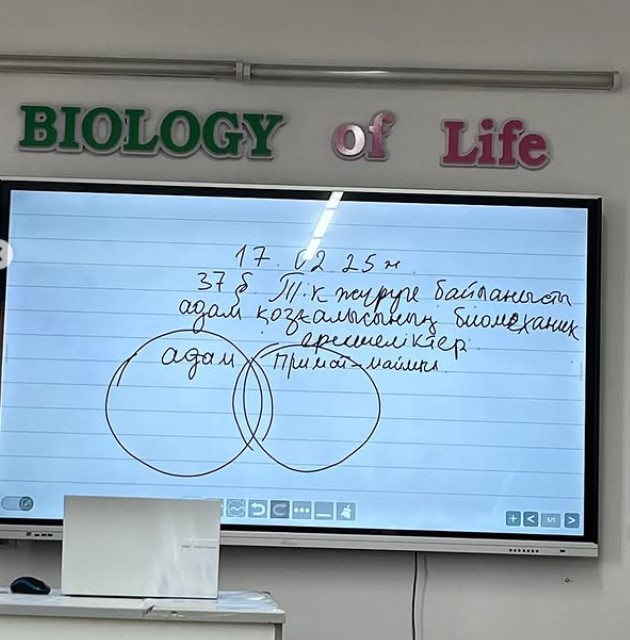 BIOLOGY of Life
17. 02 25 ж.
37 б Тік жүруге байланысты
адам қозғалысының биомеханик
ерекшеліктер
адам Примат-маймы
1/1